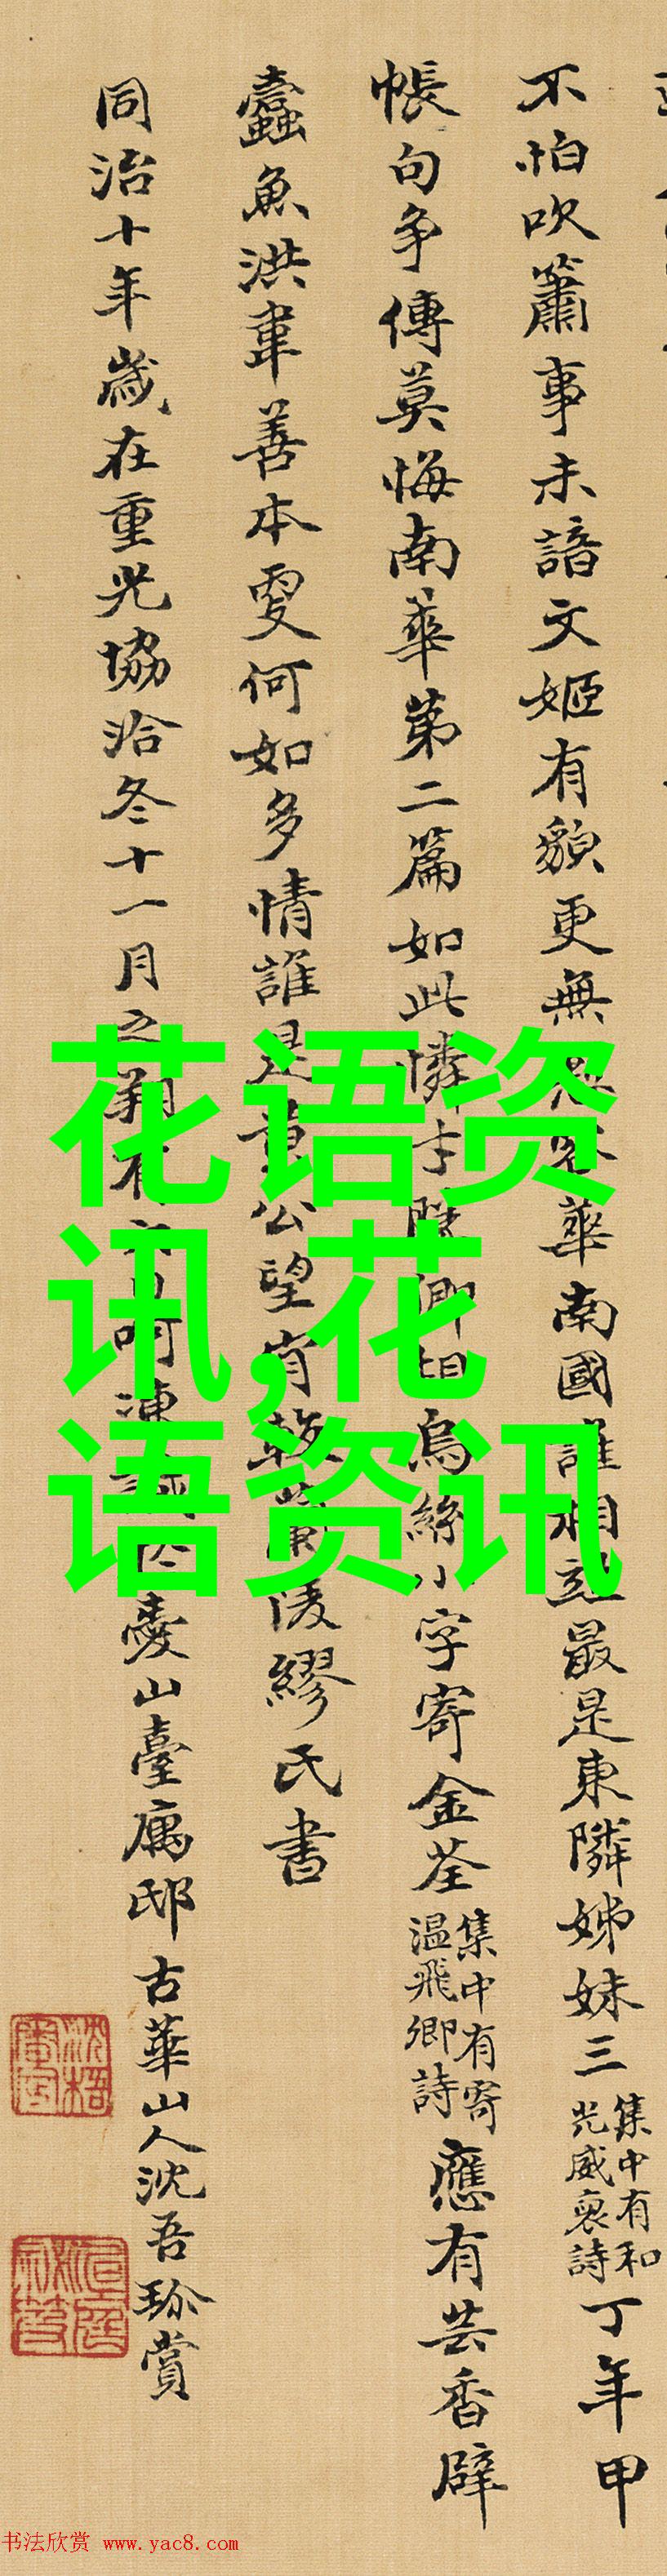 不怕吹簫事未諳文姬有貌更無
華南國誰相
最是東隣姊妹三
集中有和
光威裒詩
丁年甲
帳句爭傳莫悔南華第二篇如此憐才
烏絲小字寄金荃
集中有寄
溫飛卿詩
應有芸香辟
蠹魚洪韋善本夐何如多情誰是黃公望肯
繆氏書
同治十年歲在重光協洽冬十一月之
呵凍
山臺寓邸古華山人沈吾珍賞
花语资
讯,花
语资讯
书法欣赏 www.yac8.com